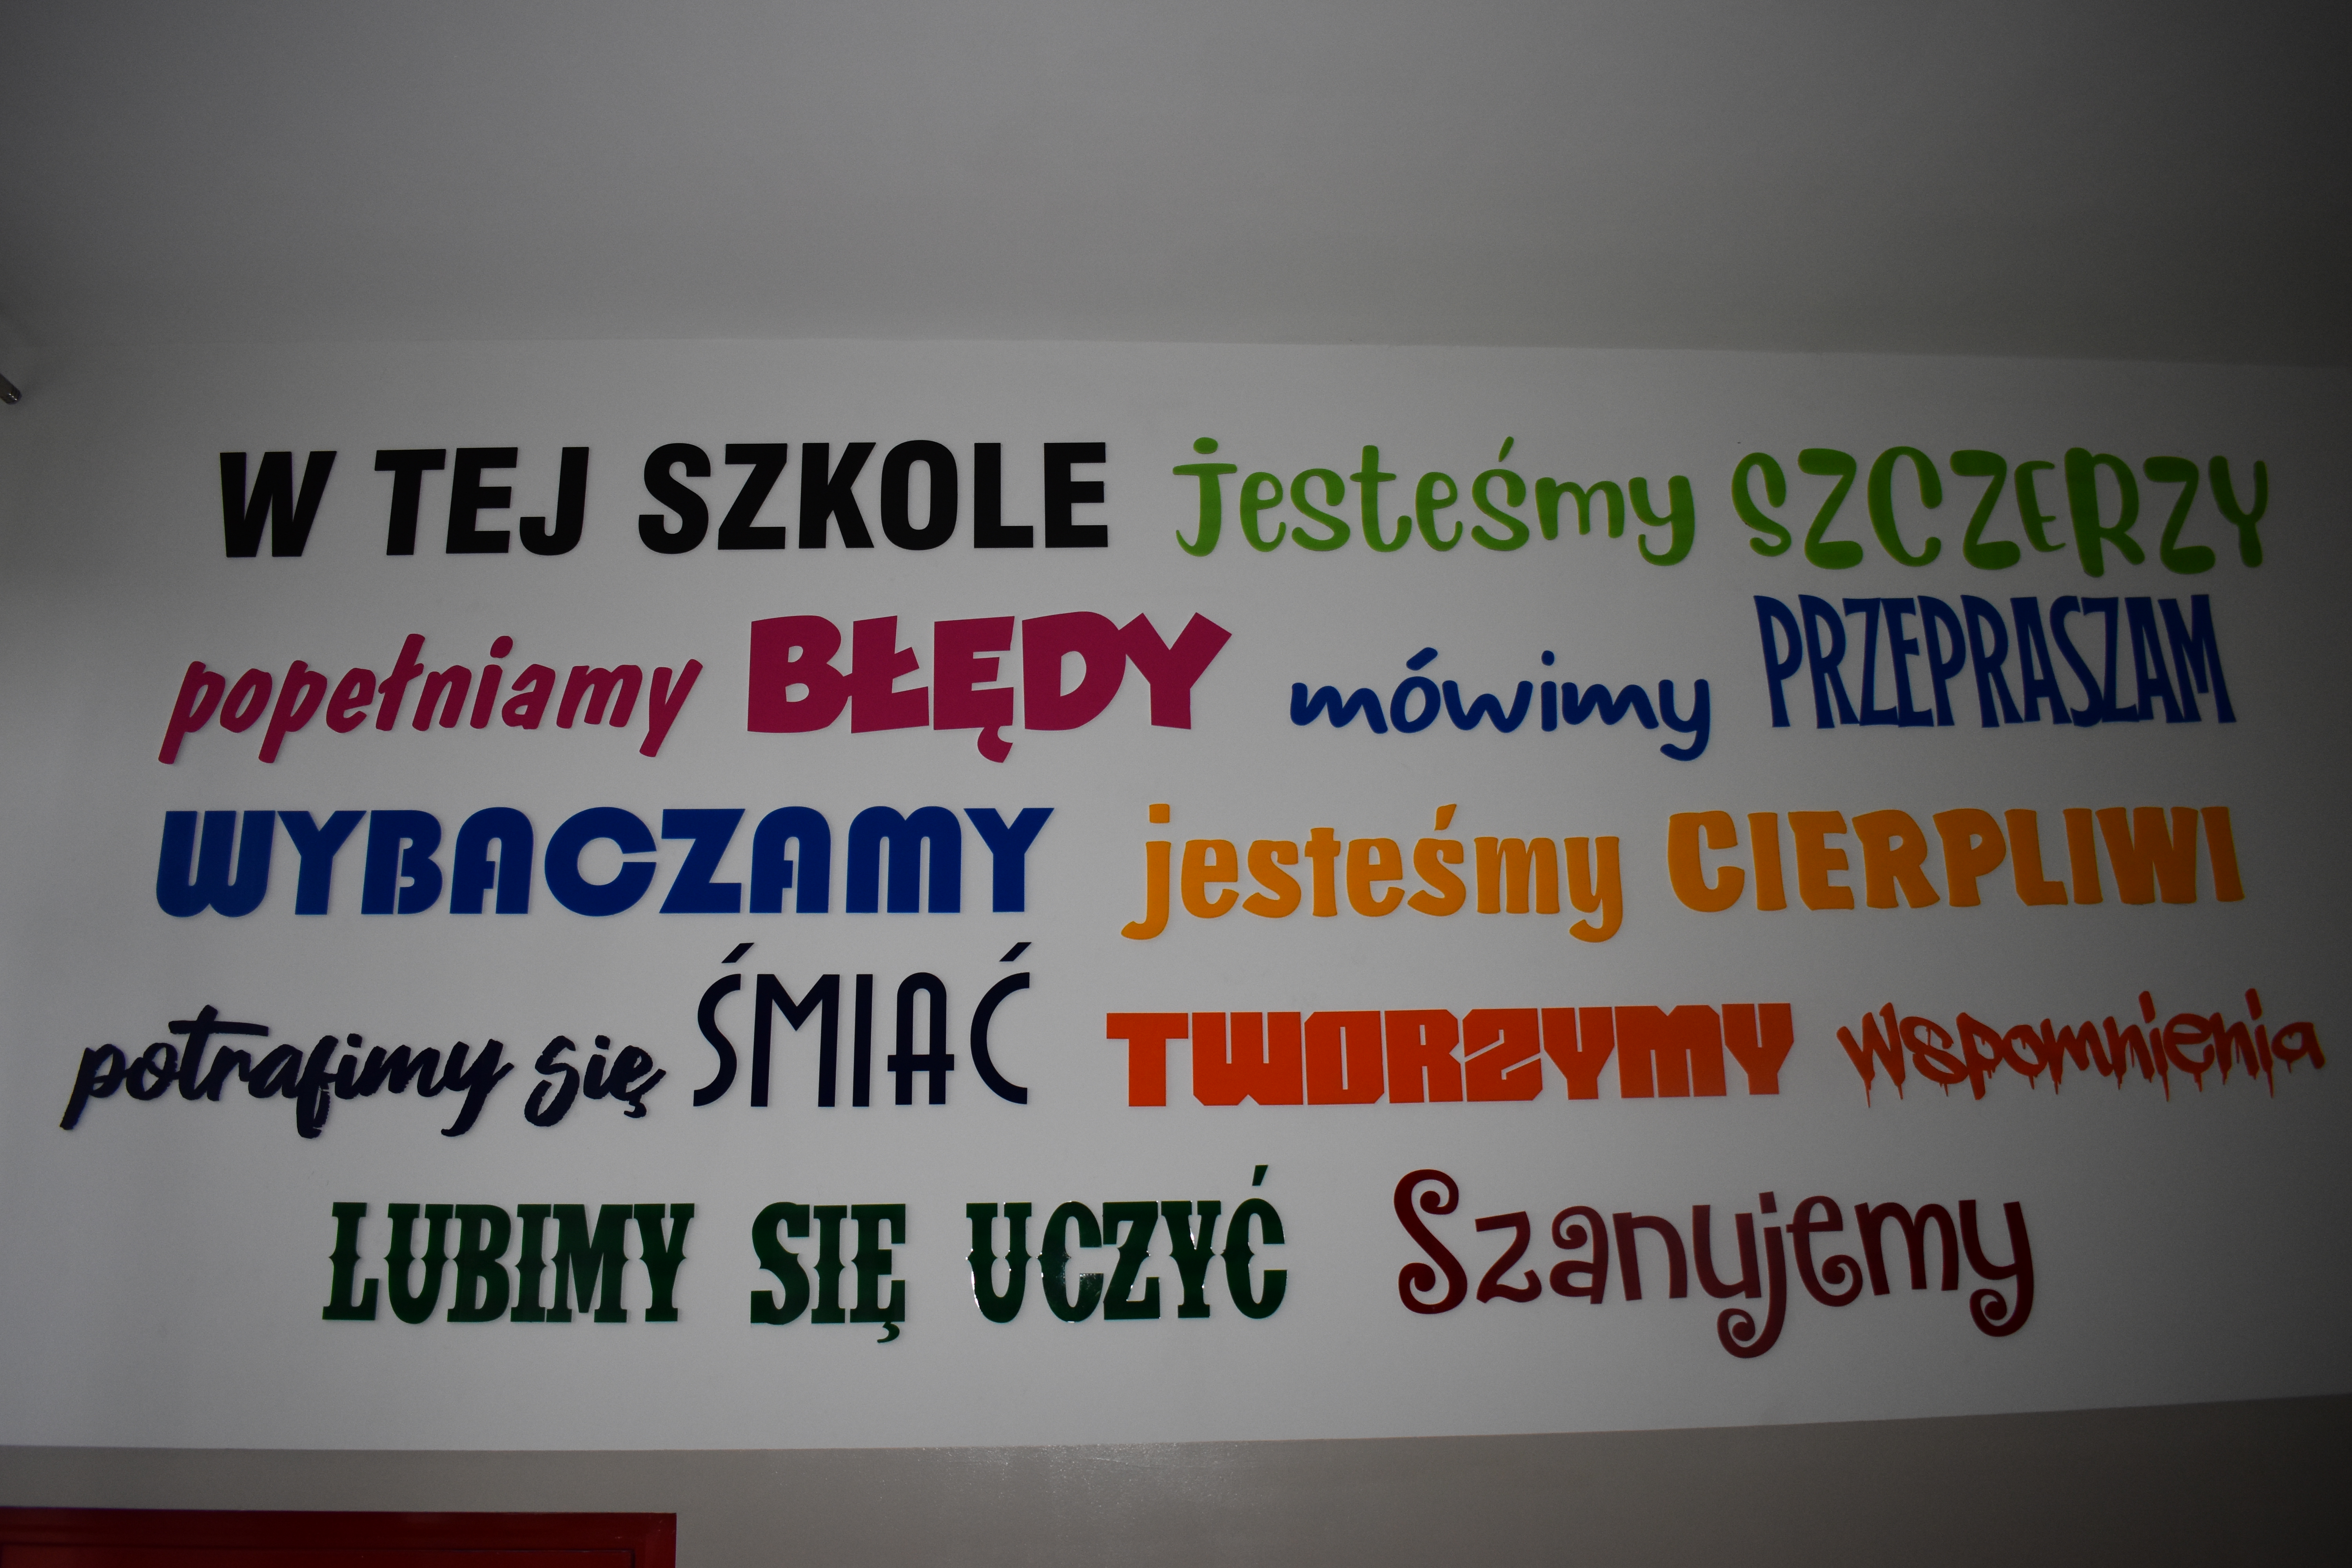 W TEJ SZKOLE jesteśmy SZCZERZY
popełniamy BŁĘDY mówimy PRZEPRASZAM
WYBACZAMY jesteśmy CIERPLIWI
potrafimy się ŚMIAĆ TWORZYMY wspomnienia
LUBIMY SIĘ UCZYĆ Szanujemy